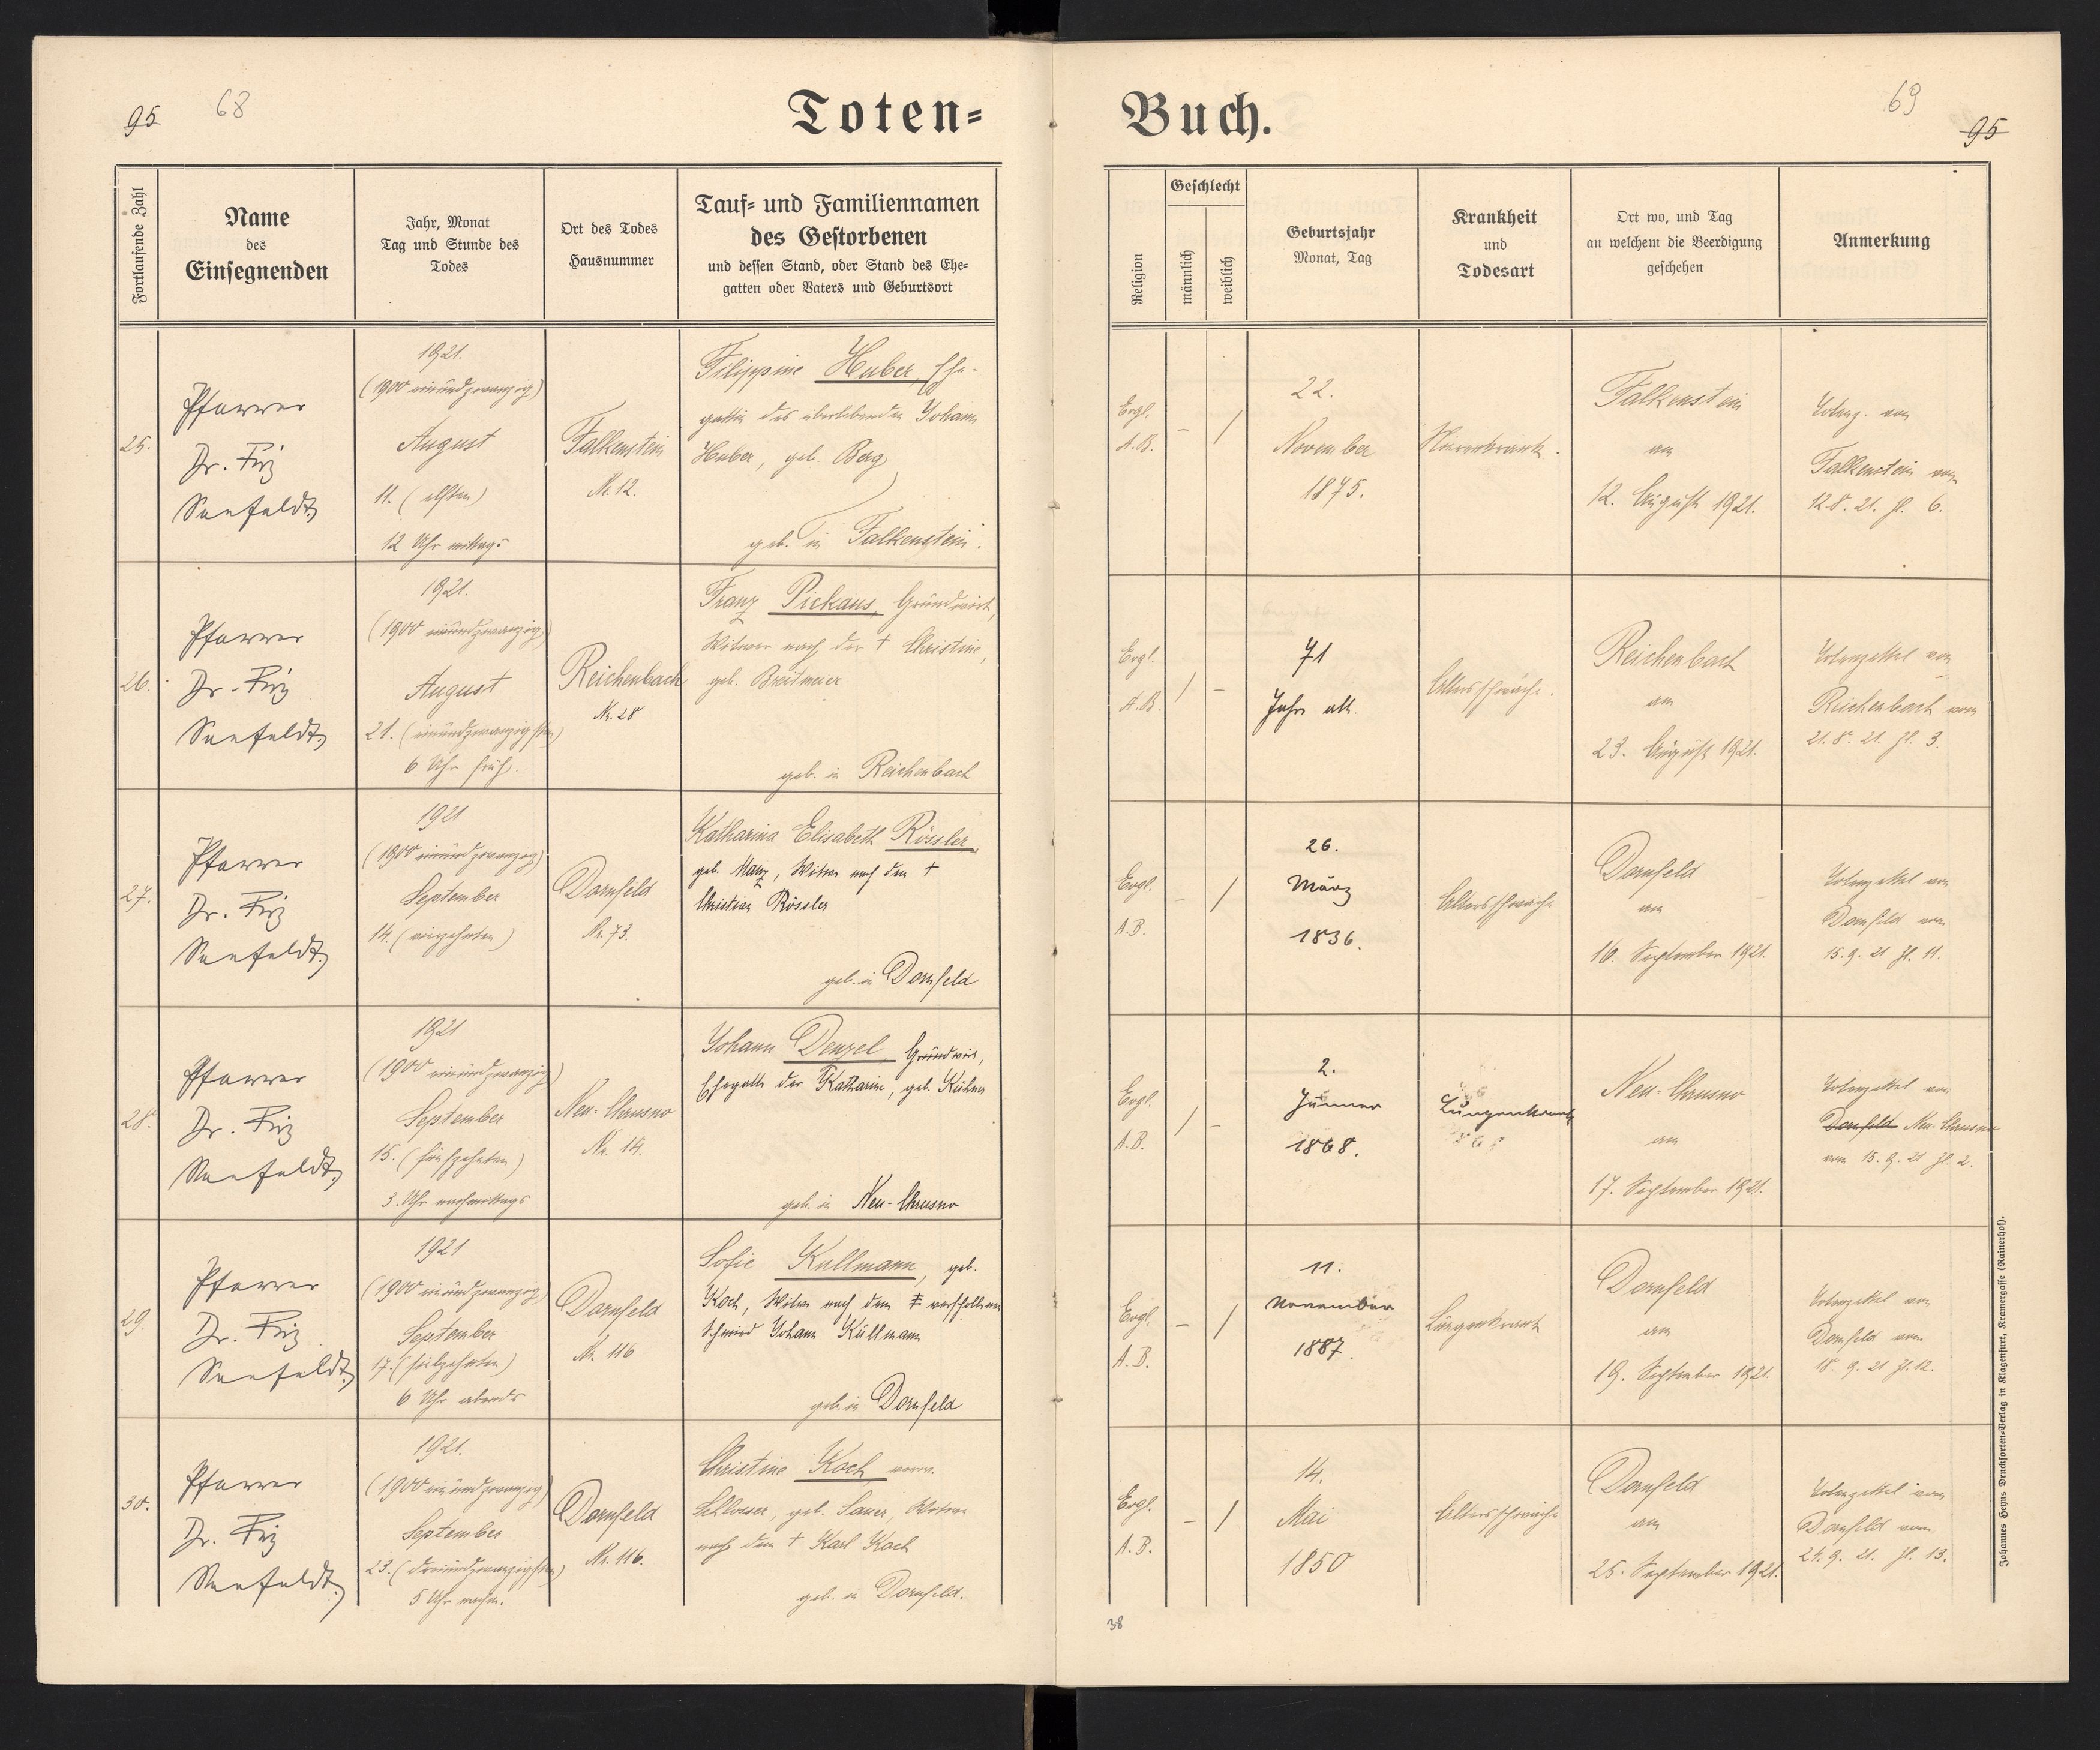 95 68
Toten-
Buch.
69
95
Fortlaufende Zahl
Name
des
Einsegnenden
Jahr, Monat
Tag und Stunde des
Todes
Ort des Todes
Hausnummer
Tauf- und Familiennamen
des Gestorbenen
und dessen Stand, oder Stand des Ehe-
gatten oder Vaters und Geburtsort
Religion
Geschlecht
männlich
weiblich
Geburtsjahr
Monat, Tag
Krankheit
und
Todesart
Ort wo, und Tag
an welchem die Beerdigung
geschehen
Anmerkung
25.
Pfarrer
Dr. Friz
Seefeldt
1921.
(1900 einundzwanzig)
August
11. (elften)
12 Uhr mittags
Falkenstein
Nr. 12.
Filippine Huber Ehe-
gattin des überlebenden Johann
Huber, geb. Berg
geb. in Falkenstein.
Evgl.
A.B.
-
/
22.
November
1875.
Nierenkrank.
Falkenstein
am
12. August 1921.
Totenz. von
Falkenstein vom
12.8.21. Zl. 6.
26.
Pfarrer
Dr. Friz
Seefeldt
1921.
(1900 einundzwanzig)
August
21. (einundzwanzigsten)
6 Uhr früh.
Reichenbach
Nr. 28
Franz Pickaus, Grundwirt,
Witwer nach der † Christine,
geb. Breitmeier
geb. in Reichenbach
Evgl.
A.B.
/
-
71
Jahre alt.
Altersschwäche.
Reichenbach
am
23. August 1921.
Totenzettel von
Reichenbach vom
21.8.21. Zl. 3.
27.
Pfarrer
Dr. Friz
Seefeldt
1921
(1900 einundzwanzig)
September
14. (vierzehnten)
Dornfeld
Nr. 73.
Katharina Elisabeth Rössler,
geb. Manz, Witwe nach dem †
Christian Rössler
geb. in Dornfeld
Evgl.
A.B.
-
/
26.
März
1836.
Altersschwäche
Dornfeld
am
16. September 1921.
Totenzettel von
Dornfeld vom
15.9.21 Zl. 11.
28.
Pfarrer
Dr. Friz
Seefeldt
1921
(1900 einundzwanzig)
September
15. (fünfzehnten)
3 Uhr nachmittags
Neu-Chrusno
Nr. 14.
Johann Denzel Grundwirt,
Ehegatte der Katharine, geb. Kühner
geb. in Neu-Chrusno
Evgl.
A.B.
/
-
2.
Jänner
1868.
Lungenkrank
Neu-Chrusno
am
17. September 1921.
Totenzettel von
Dornfeld Neu-Chrusno
vom 15.9.21 Zl. 2.
29.
Pfarrer
Dr. Friz
Seefeldt
1921
(1900 einundzwanzig)
September
17. (siebzehnten)
6 Uhr abends
Dornfeld
Nr. 116
Sofie Kullmann, geb.
Koch, Witwe nach dem verschollenen
Schmied Johann Kullmann
geb. in Dornfeld
Evgl.
A.B.
-
/
11.
November
1887.
Lungenkrank
Dornfeld
am
19. September 1921.
Totenzettel von
Dornfeld vom
18.9.21 Zl. 12.
30.
Pfarrer
Dr. Friz
Seefeldt
1921.
(1900 einundzwanzig)
September
23. (dreiundzwanzigsten)
5 Uhr nachm.
Dornfeld
Nr. 116.
Christine Koch verw.
Schlosser, geb. Sauer, Witwe
nach dem † Karl Koch
geb. in Dornfeld.
Evgl.
A.B.
-
/
14.
Mai
1850
Altersschwäche
Dornfeld
am
25. September 1921.
Totenzettel von
Dornfeld vom
24.9.21. Zl. 13.
38
Johannes Heyns Drucksorten-Verlag in Klagenfurt, Kramergasse (Rainerhof).